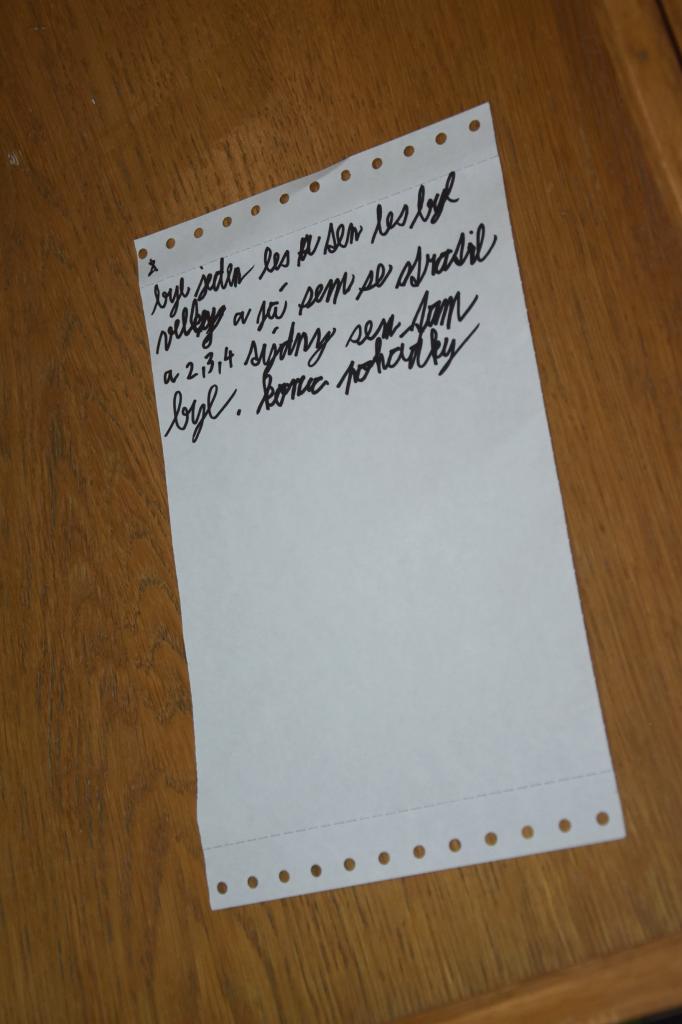 byl jeden les a ten les byl
velky a já sem se stratil
a 2,3,4 tídny sem tam
byl. konec pohádky